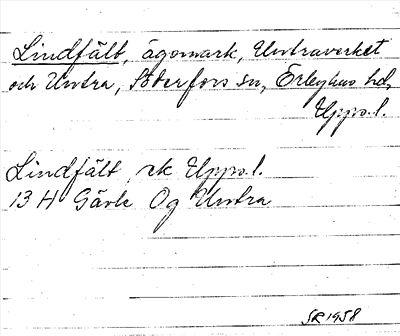 Lindfält, ägomark, Untraverket
och Untra, Söderfors sn, Örbyhus hd,
Upps.l.
Lindfält, rk Upps.l.
13 H Gävle Og Untra
SR 1958